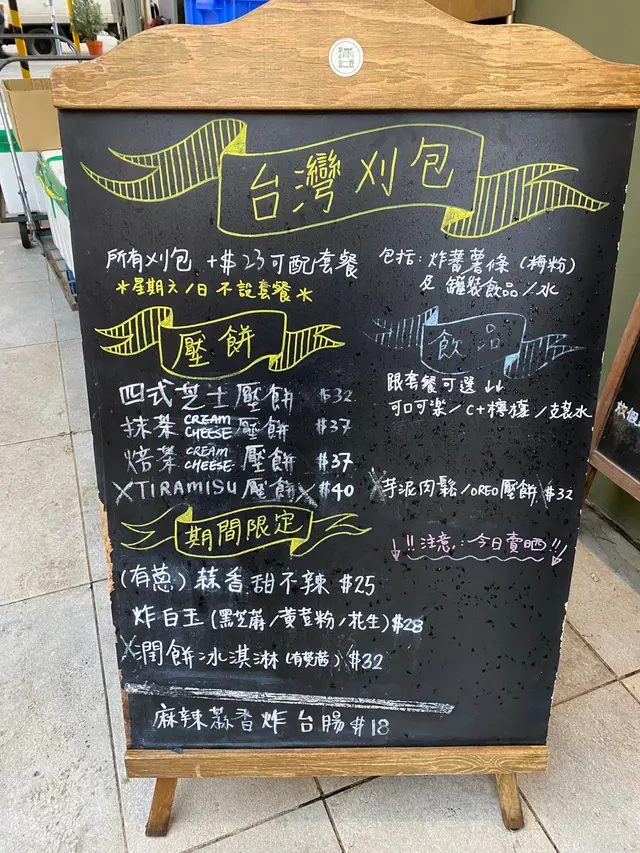 台灣刈包
所有刈包 +$23可配套餐
*星期六/日 不設套餐*
包括: 炸蕃薯條 (梅粉)
及 罐裝飲品/水
壓餅
四式芝士壓餅 $32
抹茶 CREAM CHEESE 壓餅 $37
焙茶 CREAM CHEESE 壓餅 $37
XTIRAMISU 壓餅X $40
飲品
跟套餐可選 ↓↓
可口可樂/C+檸檬/支裝水
X芋泥肉鬆/OREO壓餅 $32
↓!!注意: 今日賣晒!!↓
期間限定
(有蔥) 蒜香甜不辣 $25
炸白玉 (黑芝蔴/黃荳粉/花生) $28
X潤餅冰淇淋 (有芫茜) $32
麻辣蒜香炸台腸 $18